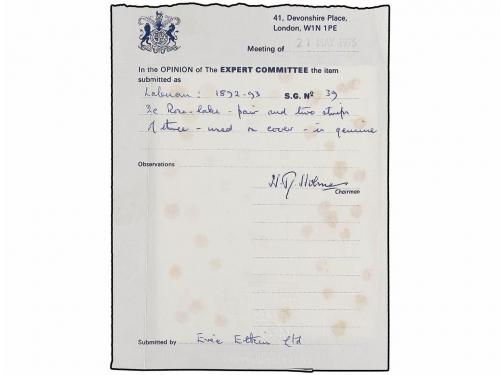 41, Devonshire Place,
London, W1N 1PE
Meeting of 21 MAY 1975
In the OPINION of The EXPERT COMMITTEE the item
submitted as
Labuan: 1892-93 S.G. Nº 39
2c Rose-lake - pair and two strips
of three - used on cover - is genuine
Observations
Chairman
Submitted by Eric Etkin Ltd